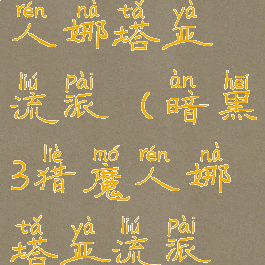 rén nà tǎ yà
人娜塔亚
liú pài àn hēi
流派(暗黑
liè mó rén nà
3猎魔人娜
tǎ yà liú pài
塔亚流派